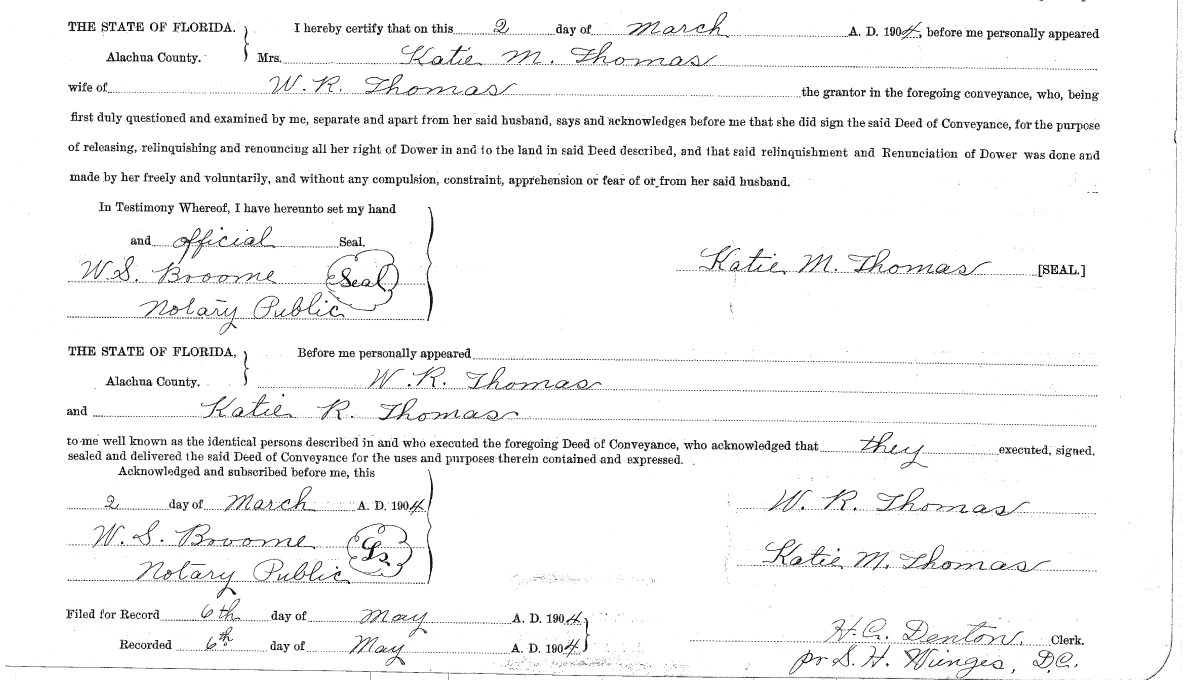 THE STATE OF FLORIDA. } I hereby certify that on this 2 day of March A. D. 1904, before me personally appeared
Alachua County. Mrs. Katie M. Thomas
wife of W. R. Thomas the grantor in the foregoing conveyance, who, being
first duly questioned and examined by me, separate and apart from her said husband, says and acknowledges before me that she did sign the said Deed of Conveyance, for the purpose
of releasing, relinquishing and renouncing all her right of Dower in and to the land in said Deed described, and that said relinquishment and Renunciation of Dower was done and
made by her freely and voluntarily, and without any compulsion, constraint, apprehension or fear of or from her said husband.
In Testimony Whereof, I have hereunto set my hand
and official Seal.
W. S. Broome Seal
Notary Public
Katie M. Thomas [SEAL.]
THE STATE OF FLORIDA, } Before me personally appeared
Alachua County. W. R. Thomas
and Katie R. Thomas
to me well known as the identical persons described in and who executed the foregoing Deed of Conveyance, who acknowledged that they executed, signed.
sealed and delivered the said Deed of Conveyance for the uses and purposes therein contained and expressed.
Acknowledged and subscribed before me, this
2 day of March A. D. 1904
W. S. Broome Ls
Notary Public
W. R. Thomas
Katie M. Thomas
Filed for Record 6th day of May A. D. 1904
Recorded 6th day of May A. D. 1904
H. C. Denton. Clerk.
pr S. H. Wienges, D.C.